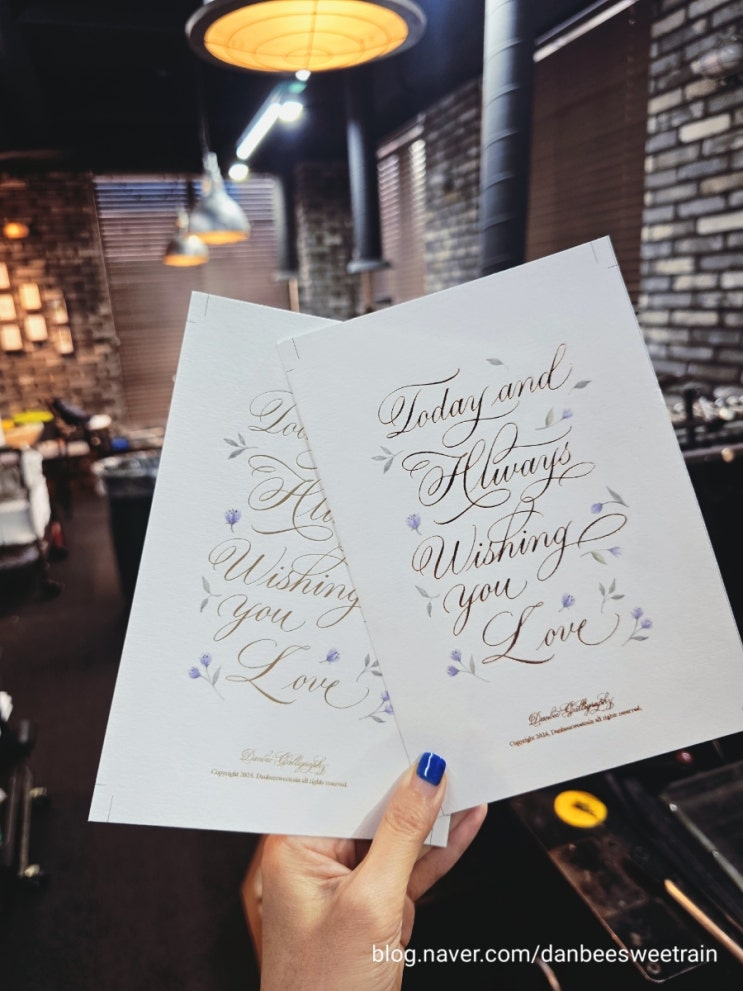 Today and
Always
Wishing
you
Love
Danbee Calligraphy
Copyright 2024. Danbeesweetrain all rights reserved.
Today and
Always
Wishing
you
Love
Danbee Calligraphy
Copyright 2024. Danbeesweetrain all rights reserved.
blog.naver.com/danbeesweetrain